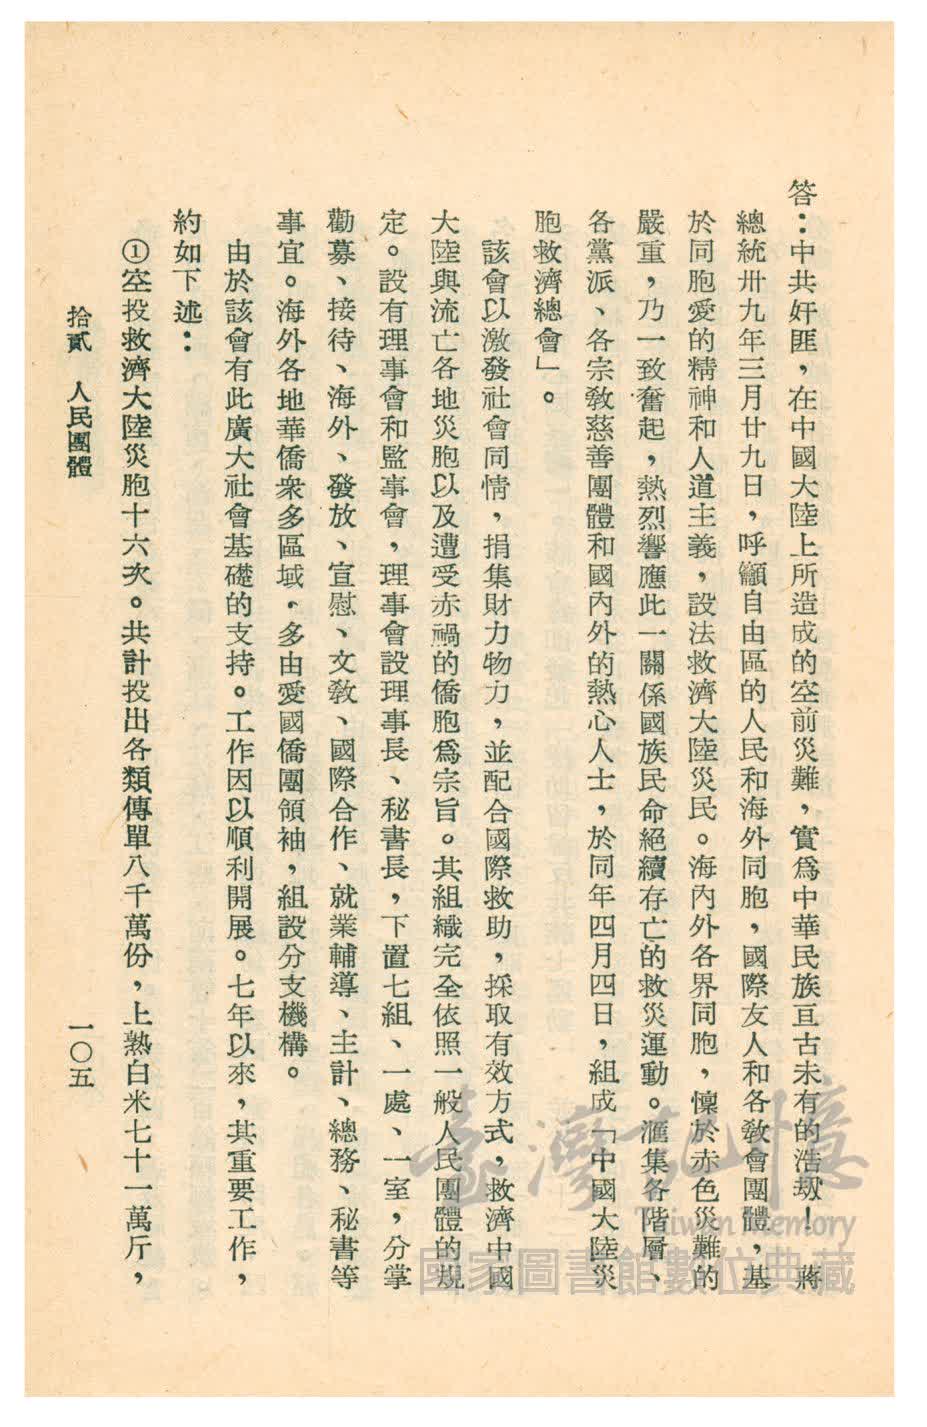 答：中共奸匪，在中國大陸上所造成的空前災難，實爲中華民族亘古未有的浩刼！　蔣
總統卅九年三月廿九日，呼籲自由區的人民和海外同胞，國際友人和各敎會團體，基
於同胞愛的精神和人道主義，設法救濟大陸災民。海內外各界同胞，懍於赤色災難的
嚴重，乃一致奮起，熱烈響應此一關係國族民命絕續存亡的救災運動。滙集各階層、
各黨派、各宗敎慈善團體和國內外的熱心人士，於同年四月四日，組成「中國大陸災
胞救濟總會」。
該會以激發社會同情，捐集財力物力，並配合國際救助，採取有效方式，救濟中國
大陸與流亡各地災胞以及遭受赤禍的僑胞爲宗旨。其組織完全依照一般人民團體的規
定。設有理事會和監事會，理事會設理事長、秘書長，下置七組、一處、一室，分掌
勸募、接待、海外、發放、宣慰、文敎、國際合作、就業輔導、主計、總務、秘書等
事宜。海外各地華僑衆多區域，多由愛國僑團領袖，組設分支機構。
由於該會有此廣大社會基礎的支持。工作因以順利開展。七年以來，其重要工作，
約如下述：
①空投救濟大陸災胞十六次。共計投出各類傳單八千萬份，上熟白米七十一萬斤，
拾貳　人民團體
一〇五
臺灣記憶
Taiwan Memory
國家圖書館數位典藏